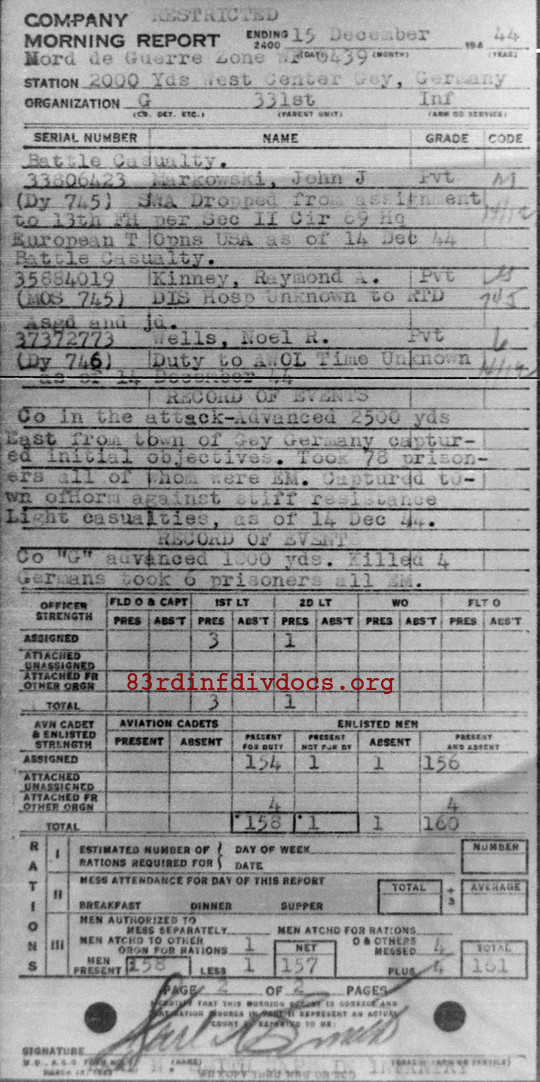 COMPANY RESTRICTED
MORNING REPORT ENDING 2400 15 December 194 44
(DAY) (MONTH) (YEAR)
Nord de Guerre Zone 439
STATION 2000 Yds West Center Gey, Germany
ORGANIZATION G 331st Inf
(CO. DET. ETC.) (PARENT UNIT) (ARM OR SERVICE)
SERIAL NUMBER NAME GRADE CODE
Battle Casualty.
33806423 Markowski, John J Pvt M
(Dy 745) SWA Dropped from assignment
to 13th FH per Sec II Cir 69 Hq
European T Opns USA as of 14 Dec 44
Battle Casualty.
35884019 Kinney, Raymond A. Pvt
(MOS 745) DIS Hosp Unknown to RTD 745
Asgd and jd.
37372773 Wells, Noel R. Pvt
(Dy 746) Duty to AWOL Time Unknown
as of 14 December 44
RECORD OF EVENTS
Co in the attack-Advanced 2500 yds
East from town of Gey Germany captur-
ed initial objectives. Took 78 prison-
ers all of whom were EM. Captured to-
wn ofHorm against stiff resistance
Light casualties, as of 14 Dec 44.
RECORD OF EVENTS
Co "G" advanced 1000 yds. Killed 4
Germans took 6 prisoners all EM.
OFFICER STRENGTH FLD O & CAPT 1ST LT 2D LT WO FLT O
PRES ABS'T PRES ABS'T PRES ABS'T PRES ABS'T PRES ABS'T
ASSIGNED 3 1
ATTACHED UNASSIGNED
ATTACHED FR OTHER ORGN
83rdinfdivdocs.org
TOTAL 3 1
AVN CADET & ENLISTED STRENGTH AVIATION CADETS ENLISTED MEN
PRESENT ABSENT PRESENT FOR DUTY PRESENT NOT FOR DY ABSENT PRESENT AND ABSENT
ASSIGNED 154 1 1 156
ATTACHED UNASSIGNED
ATTACHED FR OTHER ORGN 4 4
TOTAL 158 1 1 160
RATIONS
I ESTIMATED NUMBER OF RATIONS REQUIRED FOR { DAY OF WEEK NUMBER
DATE
II MESS ATTENDANCE FOR DAY OF THIS REPORT TOTAL ÷ 3 AVERAGE
BREAKFAST DINNER SUPPER
III MEN AUTHORIZED TO MESS SEPARATELY MEN ATCHD FOR RATIONS
MEN ATCHD TO OTHER ORGN FOR RATIONS 1 NET O & OTHERS MESSED 4 TOTAL
MEN PRESENT 158 LESS 1 157 PLUS 4 161
PAGE 2 OF 2 PAGES
I CERTIFY THAT THIS MORNING REPORT IS CORRECT AND
THAT RATION FIGURES IN PART II REPRESENT AN ACTUAL
COUNT AS REPORTED TO ME:
SIGNATURE
W.D., A.G.O. FORM NO. (NAME) (GRADE & ARM OR SERVICE)
INFANTRY